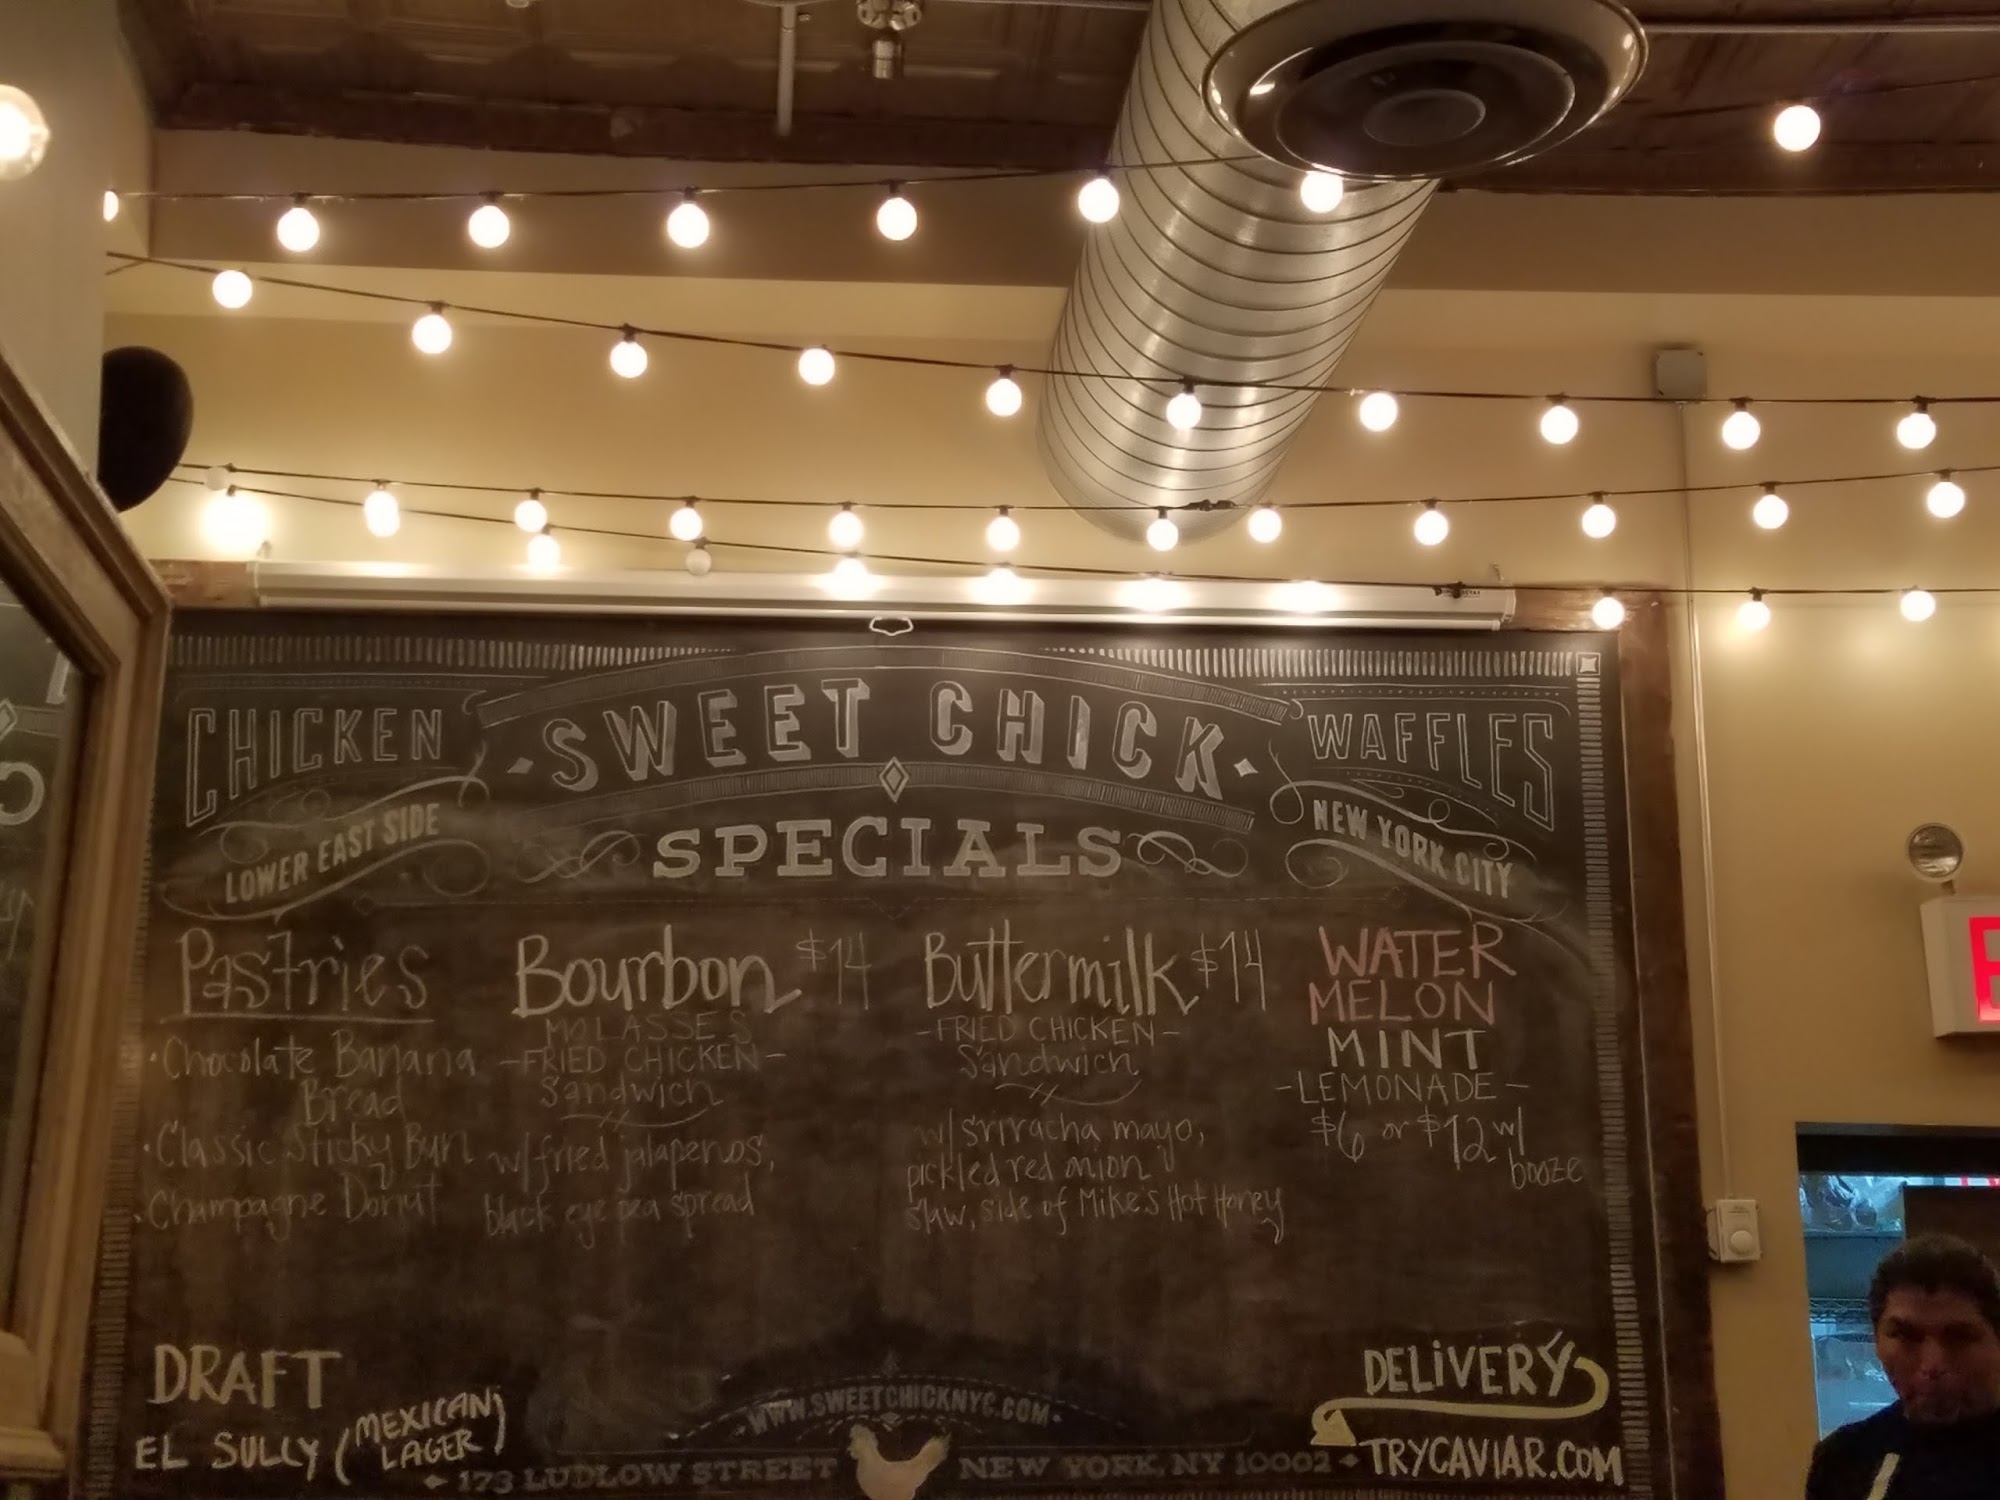 CHICKEN
LOWER EAST SIDE
SWEET CHICK
SPECIALS
WAFFLES
NEW YORK CITY
Pastries
• Chocolate Banana
Bread
• Classic Sticky Bun
• Champagne Donut
Bourbon $14
MOLASSES
- FRIED CHICKEN -
Sandwich
w/ fried jalapenos,
black eye pea spread
Buttermilk $14
- FRIED CHICKEN -
Sandwich
w/ sriracha mayo,
pickled red onion
slaw, side of Mike's Hot Honey
WATER
MELON
MINT
- LEMONADE -
$6 or $12 w/
booze
DRAFT
EL SULLY (MEXICAN
LAGER)
WWW.SWEETCHICKNYC.COM
173 LUDLOW STREET NEW YORK, NY 10002
DELIVERY
TRYCAVIAR.COM